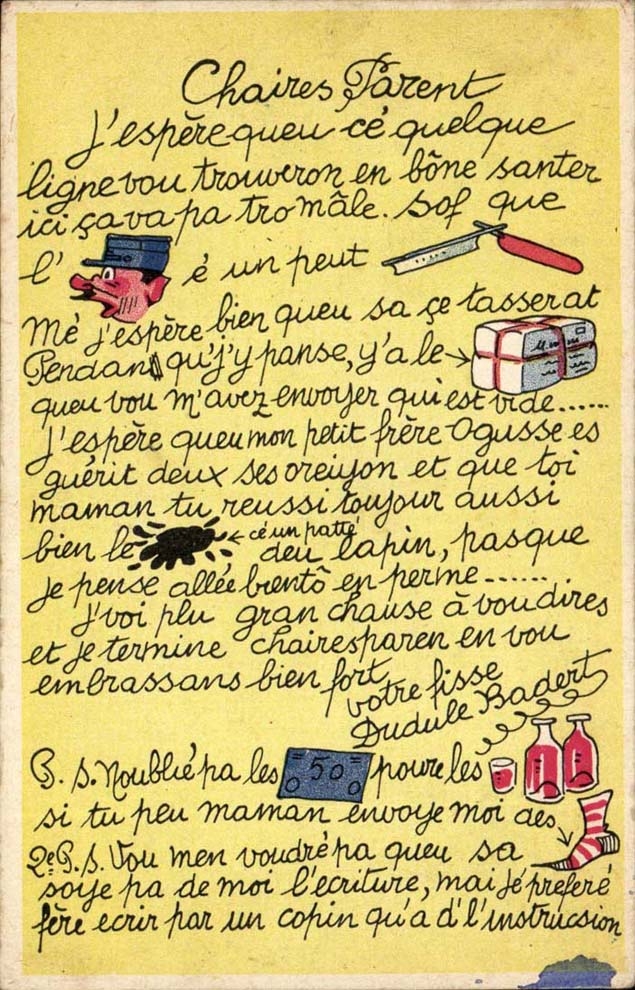 Chaires Parent
J'espère queu cé quelque
ligne vou trouveron en bône santer
ici ça va pa tro mâle. sof que
l' é un peut
Mé j'espère bien queu sa çe tasserat
Pendant qu'j'y panse, y'a le
queu vou m'avez envoyer qui est vide......
J'espère queu mon petit frère Ogusse es
guérit deux ses oreiyon et que toi
maman tu reussi toujour aussi
bien le cé un patté deu lapin, pasque
je pense allée bientô en perme......
J'voi plu gran chause à vou dires
et je termine chaires paren en vou
embrassans bien fort
votre fisse
Dudule Badert
P.S. Noublié pa les 50 poure les
si tu peu maman envoye moi des
2e P.S. Vou men voudré pa queu sa
soije pa de moi l'ecriture, mai jé préferé
fère ecrir par un copin qu'a d'l'instrucsion